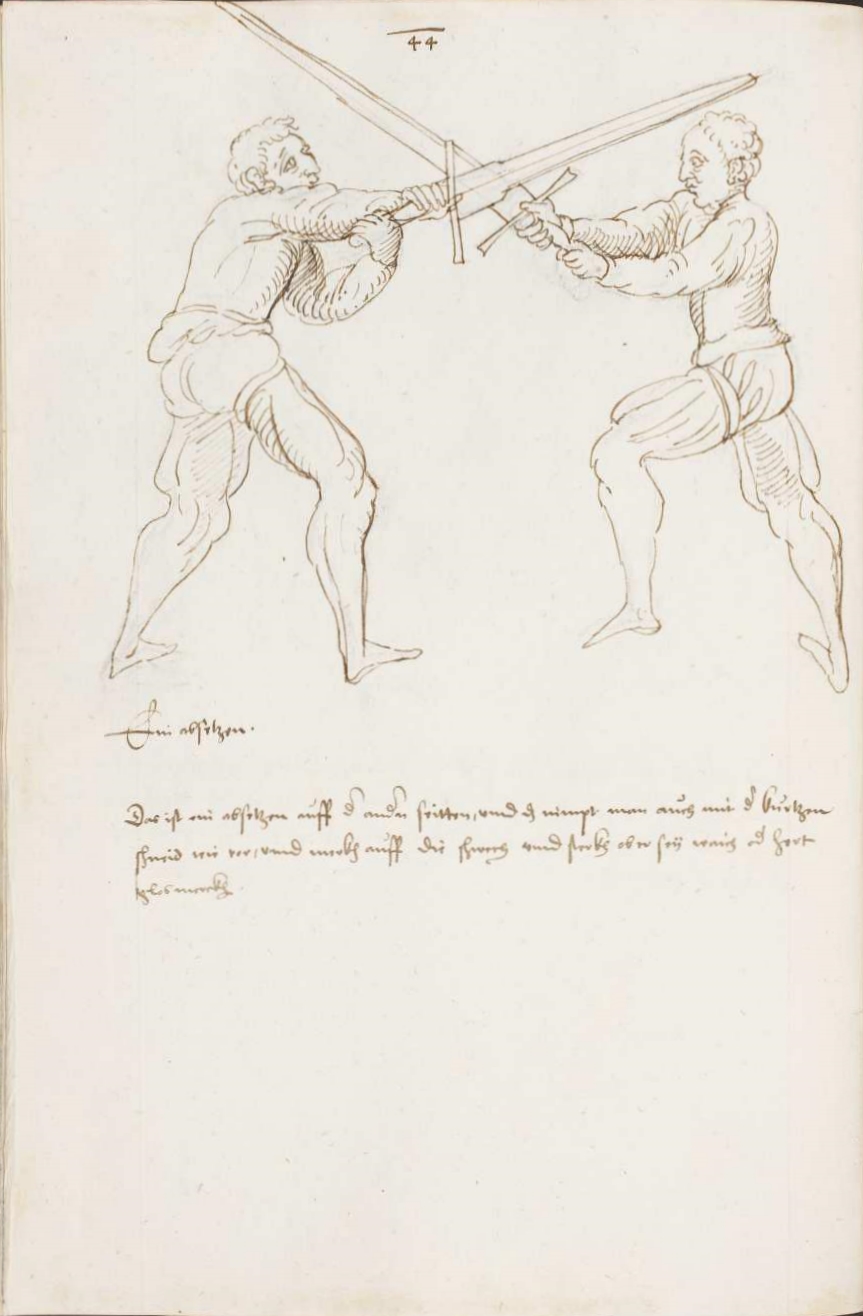 44
Ein absetzen.
Das ist ein absetzen auff d andn seitten, vnnd dz nimpt man auch mit d kurtzen
schneid wie vor, vnnd merckh auff die schwech vnnd sterckh ob er sey waich od hert
glos merckh.